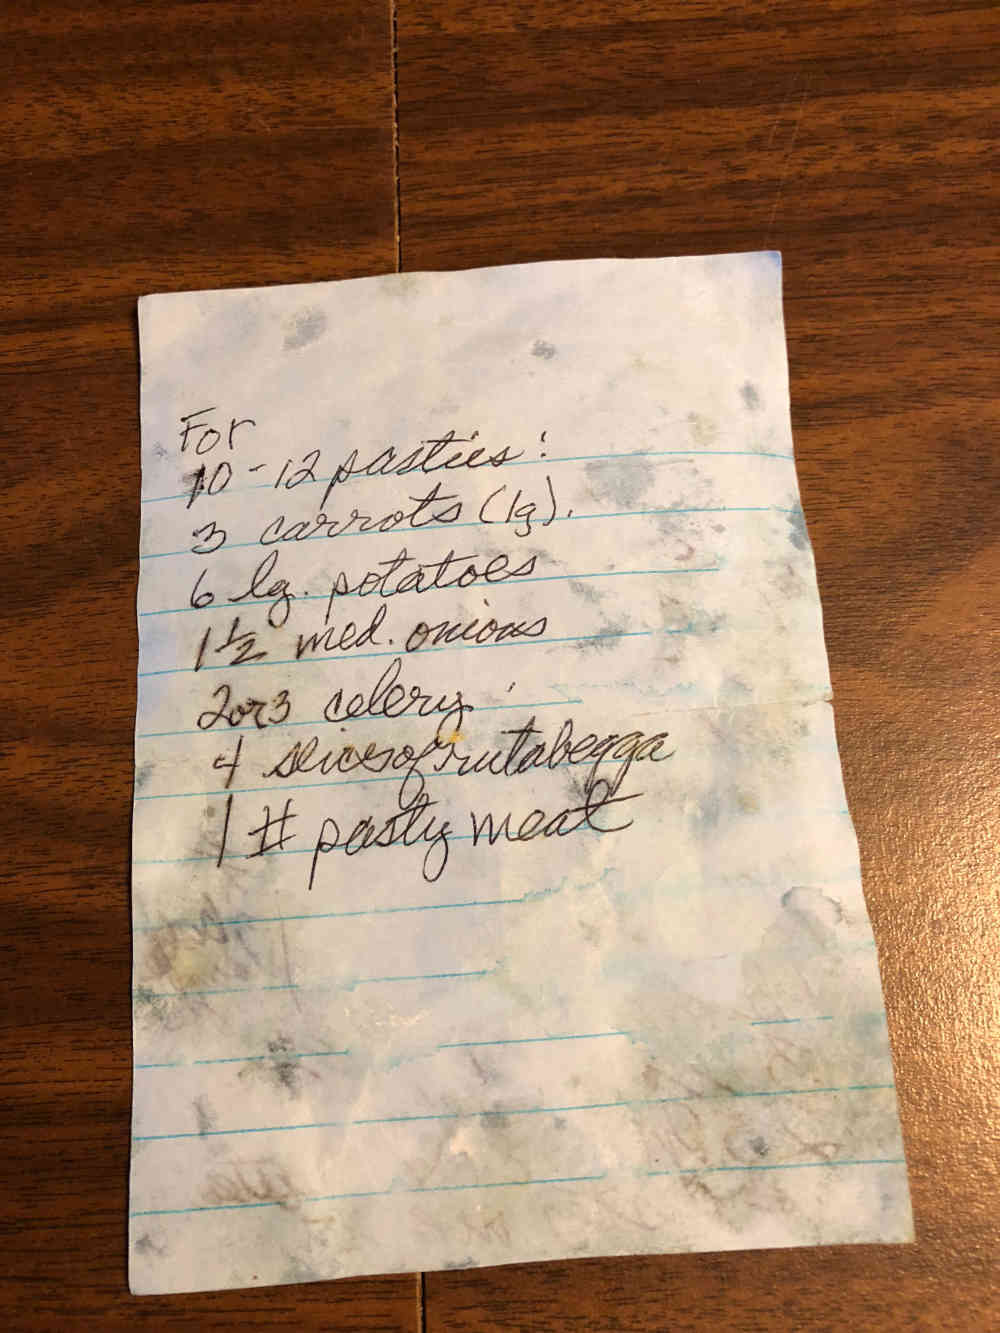 For
10-12 pasties:
3 carrots (lg).
6 lg. potatoes
1 1/2 med. onions
2 or 3 celery
4 slices of rutabegga
1 # pasty meat